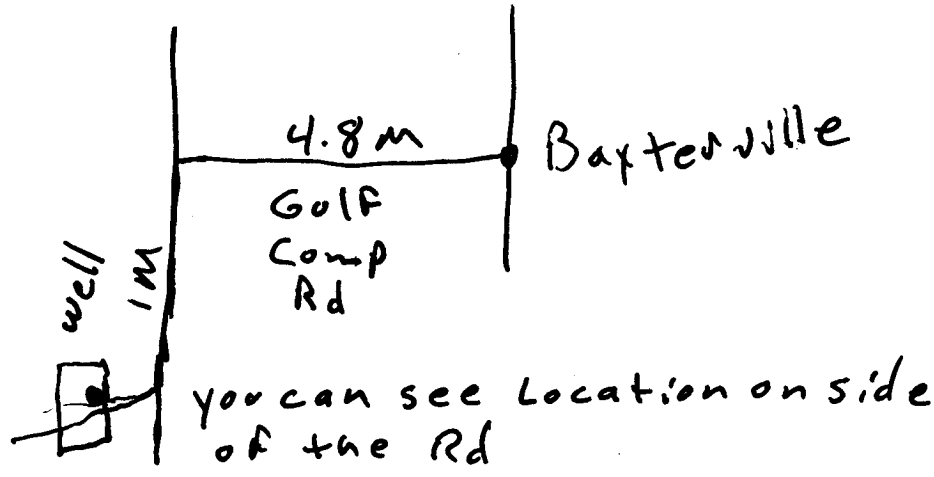 4.8 M
Baxterville
Golf
Comp
Rd
well
1 M
you can see Location on side
of the Rd